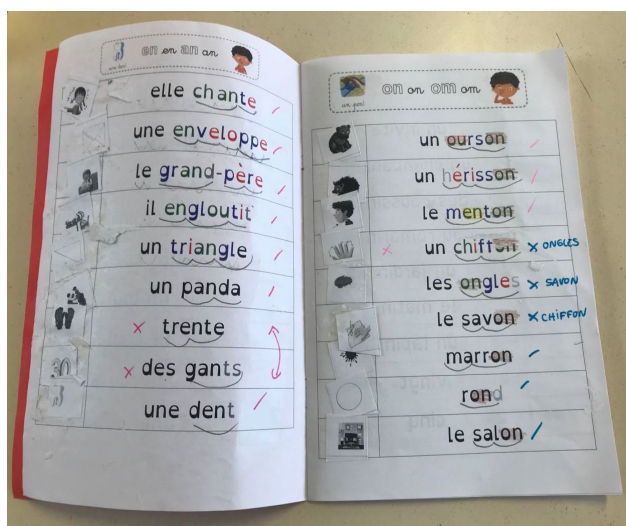 en en an an
une dent
elle chante
une enveloppe
le grand-père
il engloutit
un triangle
un panda
trente
des gants
une dent
on on om om
un pont
un ourson
un hérisson
le menton
un chiffon x ONGLES
les ongles x SAVON
le savon x CHIFFON
marron
rond
le salon